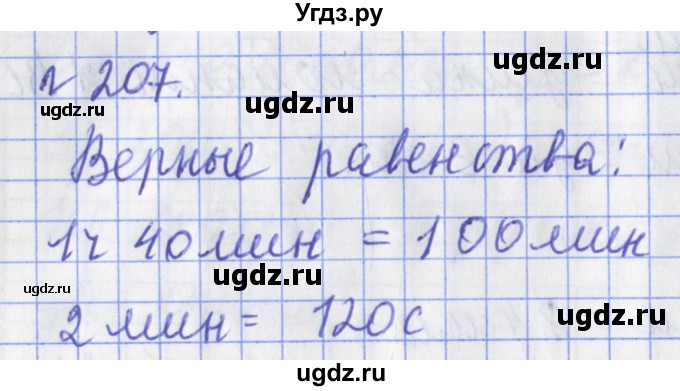 Угдз.ру
ugdz.ru
№ 207.
ugdz.ru
ugdz.ru
Верные равенства:
ugdz.ru
1ч 40 мин = 100 мин
ugdz.ru
ugdz.ru
2 мин = 120с
ugdz.ru
ugdz.ru
Угдз.ру